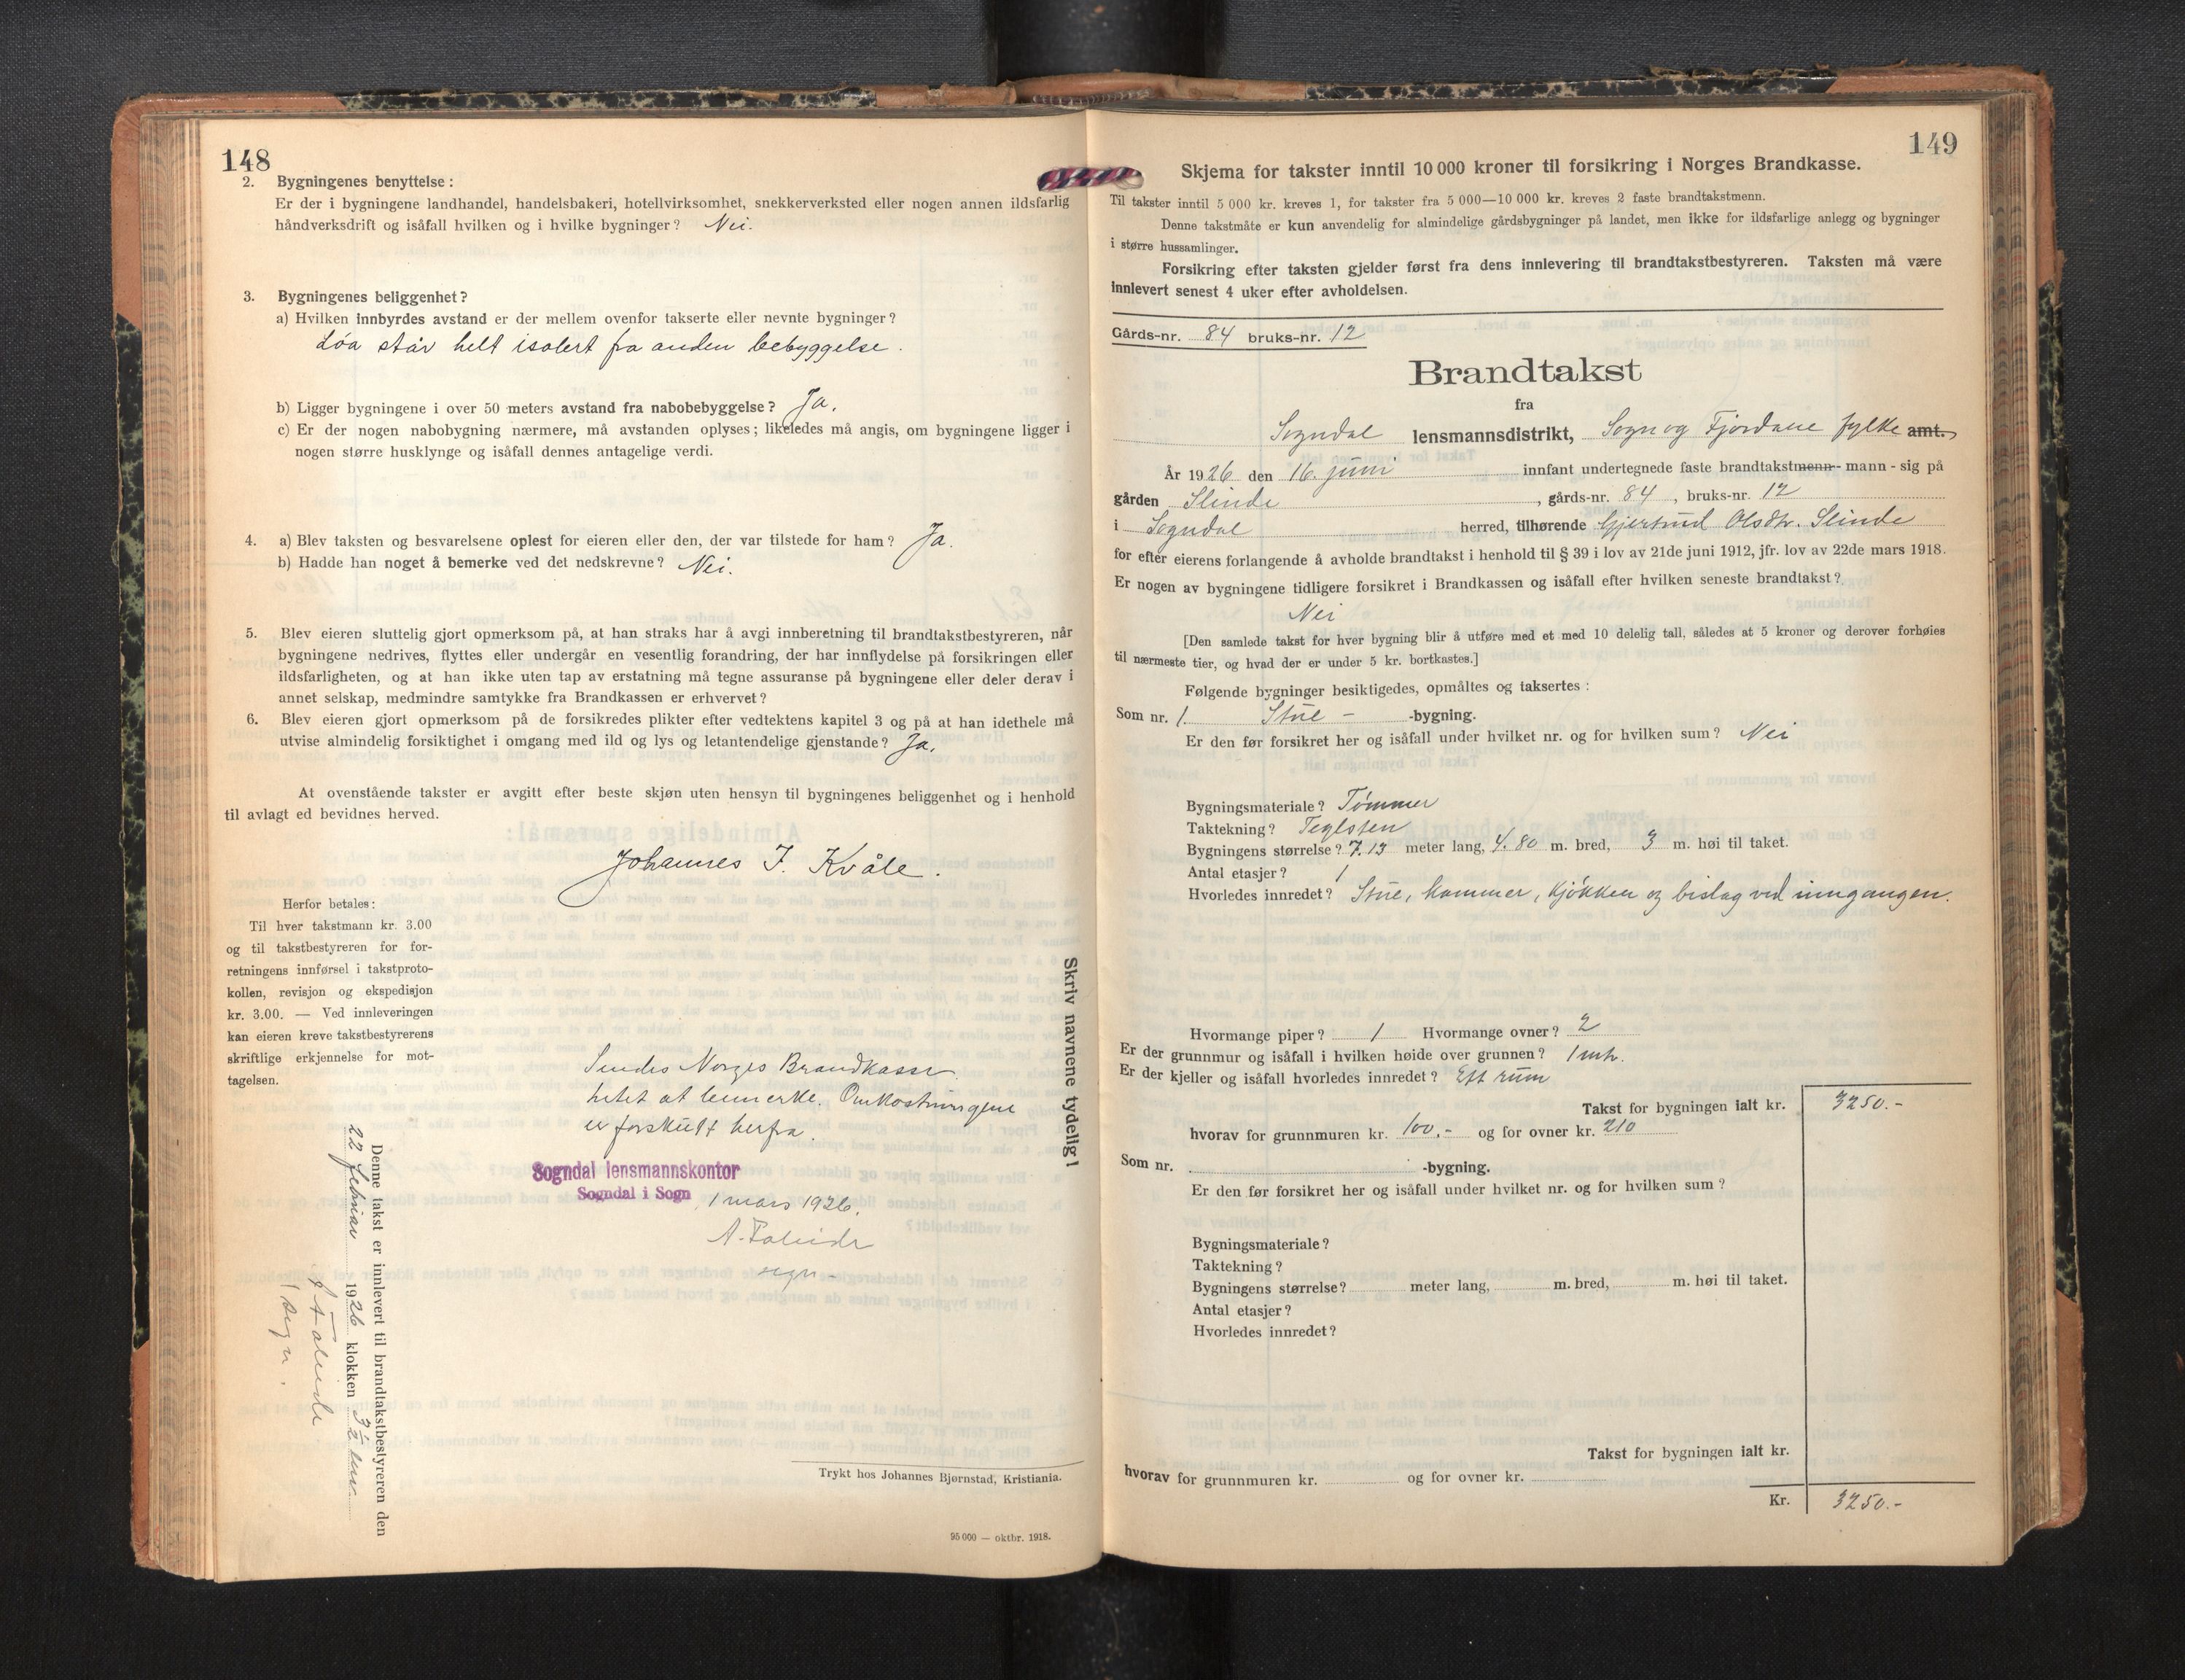 148
2. Bygningenes benyttelse :
Er der i bygningene landhandel, handelsbakeri, hotellvirksomhet, snekkerverksted eller nogen annen ildsfarlig
håndverksdrift og isåfall hvilken og i hvilke bygninger? Nei.
3. Bygningenes beliggenhet?
a) Hvilken innbyrdes avstand er der mellem ovenfor takserte eller nevnte bygninger?
Løa står helt isolert fra anden bebyggelse.
b) Ligger bygningene i over 50 meters avstand fra nabobebyggelse? Ja.
c) Er der nogen nabobygning nærmere, må avstanden oplyses; likeledes må angis, om bygningene ligger i
nogen større husklynge og isåfall dennes antagelige verdi.
4. a) Blev taksten og besvarelsene oplest for eieren eller den, der var tilstede for ham? Ja.
b) Hadde han noget å bemerke ved det nedskrevne? Nei.
5. Blev eieren sluttelig gjort opmerksom på, at han straks har å avgi innberetning til brandtakstbestyreren, når
bygningene nedrives, flyttes eller undergår en vesentlig forandring, der har innflydelse på forsikringen eller
ildsfarligheten, og at han ikke uten tap av erstatning må tegne assuranse på bygningene eller deler derav i
annet selskap, medmindre samtykke fra Brandkassen er erhvervet?
6. Blev eieren gjort opmerksom på de forsikredes plikter efter vedtektens kapitel 3 og på at han idethele må
utvise almindelig forsiktighet i omgang med ild og lys og letantendelige gjenstande? Ja.
At ovenstående takster er avgitt efter beste skjøn uten hensyn til bygningenes beliggenhet og i henhold
til avlagt ed bevidnes herved.
Johannes J. Kvåle.
Herfor betales:
Til hver takstmann kr. 3.00
og til takstbestyreren for for-
retningens innførsel i takstproto-
kollen, revisjon og ekspedisjon
kr. 3.00. — Ved innleveringen
kan eieren kreve takstbestyrerens
skriftlige erkjennelse for mot-
tagelsen.
Skriv navnene tydelig!
Sendes Norges Brandkasse.
Intet at bemerke. Omkostningene
er forskutt herfra.
Sogndal lensmannskontor
Sogndal i Sogn 1 mars 1926.
sign
Denne takst er innlevert til brandtakstbestyreren den
22 februar 1926 klokken 3½ em.
sign.
Trykt hos Johannes Bjørnstad, Kristiania.
95 000 — oktbr. 1918.
149
Skjema for takster inntil 10 000 kroner til forsikring i Norges Brandkasse.
Til takster inntil 5 000 kr. kreves 1, for takster fra 5 000—10 000 kr. kreves 2 faste brandtakstmenn.
Denne takstmåte er kun anvendelig for almindelige gårdsbygninger på landet, men ikke for ildsfarlige anlegg og bygninger
i større hussamlinger.
Forsikring efter taksten gjelder først fra dens innlevering til brandtakstbestyreren. Taksten må være
innlevert senest 4 uker efter avholdelsen.
Gårds-nr. 84 bruks-nr. 12
Brandtakst
fra
Sogndal lensmannsdistrikt, Sogn og Fjordane fylke amt.
År 1926 den 16. juni innfant undertegnede faste brandtakstmenn - mann - sig på
gården Slinde, gårds-nr. 84, bruks-nr. 12
i Sogndal herred, tilhørende Gjertrud Olsdtr. Slinde
for efter eierens forlangende å avholde brandtakst i henhold til § 39 i lov av 21de juni 1912, jfr. lov av 22de mars 1918.
Er nogen av bygningene tidligere forsikret i Brandkassen og isåfall efter hvilken seneste brandtakst?
Nei
[Den samlede takst for hver bygning blir å utføre med et med 10 delelig tall, således at 5 kroner og derover forhøies
til nærmeste tier, og hvad der er under 5 kr. bortkastes.]
Følgende bygninger besiktigedes, opmåltes og taksertes :
Som nr. 1. Stue - -bygning.
Er den før forsikret her og isåfall under hvilket nr. og for hvilken sum? Nei
Bygningsmateriale? Tømmer
Taktekning? Teglsten
Bygningens størrelse? 7.13 meter lang, 4.80 m. bred, 3 m. høi til taket.
Antal etasjer? 1
Hvorledes innredet? Stue, kammer, kjøkken og bislag ved inngangen.
Hvormange piper? 1 Hvormange ovner? 2
Er der grunnmur og isåfall i hvilken høide over grunnen? 1 mtr.
Er der kjeller og isåfall hvorledes innredet? Ett rum
Takst for bygningen ialt kr. 3250.-
hvorav for grunnmuren kr. 100,- og for ovner kr. 210
Som nr. -bygning.
Er den før forsikret her og isåfall under hvilket nr. og for hvilken sum?
Bygningsmateriale?
Taktekning?
Bygningens størrelse? meter lang, m. bred, m. høi til taket.
Antal etasjer?
Hvorledes innredet?
Takst for bygningen ialt kr.
hvorav for grunnmuren kr. og for ovner kr.
Kr. 3250.-